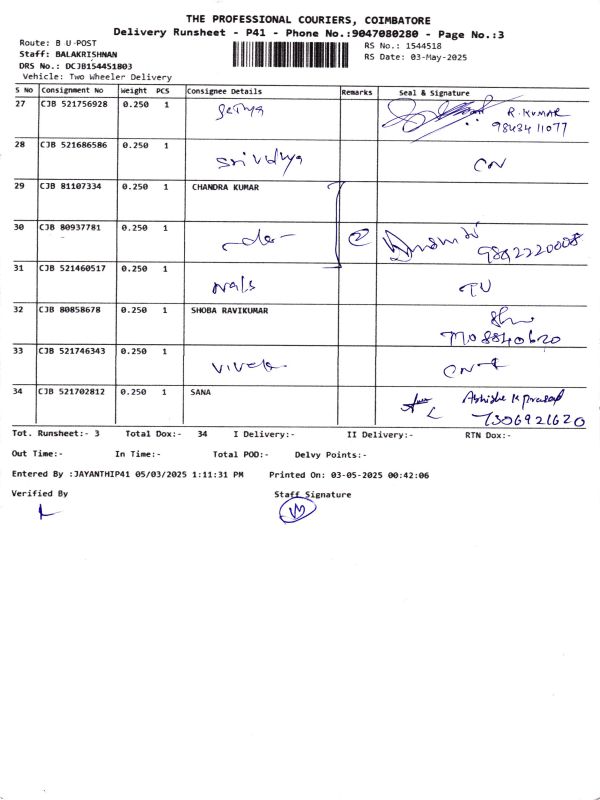 THE PROFESSIONAL COURIERS, COIMBATORE
Delivery Runsheet - P41 - Phone No.:9047080280 - Page No.:3
Route: B U-POST
RS No.: 1544518
Staff: BALAKRISHNAN
RS Date: 03-May-2025
DRS No.: DCJB154451803
Vehicle: Two Wheeler Delivery
S No Consignment No Weight PCS Consignee Details Remarks Seal & Signature
27 CJB 521756928 0.250 1 R. KUMAR
98434 11077
28 CJB 521686586 0.250 1 Srividhya CN
29 CJB 81107334 0.250 1 CHANDRA KUMAR
30 CJB 80937781 0.250 1 -do- 2
9892220008
31 CJB 521460517 0.250 1 TU
32 CJB 80858678 0.250 1 SHOBA RAVIKUMAR
33 CJB 521746343 0.250 1 Vivek
34 CJB 521702812 0.250 1 SANA
7306921620
Tot. Runsheet:- 3 Total Dox:- 34 I Delivery:- II Delivery:- RTN Dox:-
Out Time:- In Time:- Total POD:- Delvy Points:-
Entered By :JAYANTHIP41 05/03/2025 1:11:31 PM Printed On: 03-05-2025 00:42:06
Verified By Staff Signature